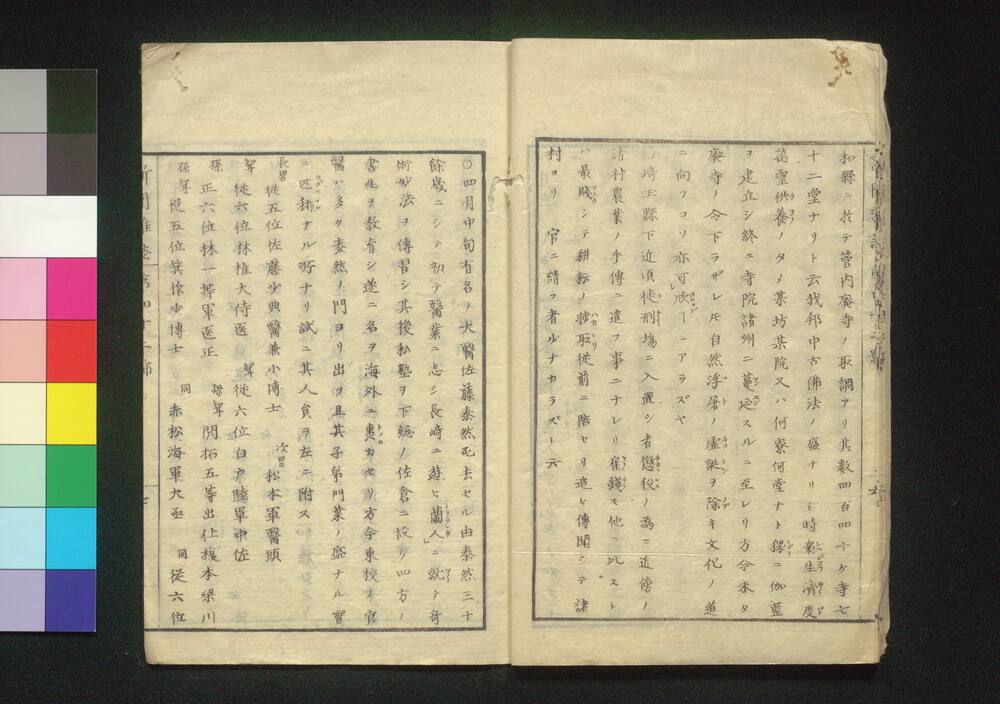 和縣ニ於テ管内廢寺ノ取調アリ其數四百四十ケ寺七
十二堂ナリト云我邦中古佛法ノ盛ナリシ時衆生濟度
萬靈供養ノタメ某坊某院又ハ何寮何堂ナト猥ニ伽藍
ヲ建立シ終ニ寺院諸州ニ蔓延スルニ至レリ方今未タ
廢寺ノ令下ラザレ𪜈自然浮屠ノ虚誕ヲ除キ文化ノ道
ニ向フコソ亦可欣ノ一ニアラズヤ
〇埼玉縣下近頃徒刑場ニ入置シ者懲役ノ為ニ近傍ノ
諸村農業ノ手傳ニ遣フ事ニナレリ雇錢モ他ニ比スレ
ハ最賤シテ耕耘ノ捗取從前ニ陪セリ追ヒ傳聞シテ諸
村ヨリ 官ニ請フ者ルナカラズト云
〇四月中旬有名ノ大醫佐藤泰然死去セル由泰然三十
餘歳ニシテ初テ醫業ニ志シ長崎ニ遊ヒ蘭人ニ就テ竒
術妙法ヲ傳習シ其後私塾ヲ下總ノ佐倉ニ設ケ四方ノ
書生ヲ教育シ遂ニ名ヲ海外ニ轟カセリ方今東校ノ官
醫ハ多ク泰然ノ門ヨリ出ツ且其子弟門葉ノ盛ナル實
ニ匹稀ナル所ナリ試ニ其人員ヲ左ニ附ス
長男 從五位佐藤少典醫兼小博士 次男 松本軍醫頭
聟 從六位林權大侍医 聟 從六位白戸陸軍中佐
孫 正六位林一等軍医正 孫聟 開拓五等出仕榎本梁川
孫聟 從五位箕作少博士 同 赤松海軍大丞 同 從六位